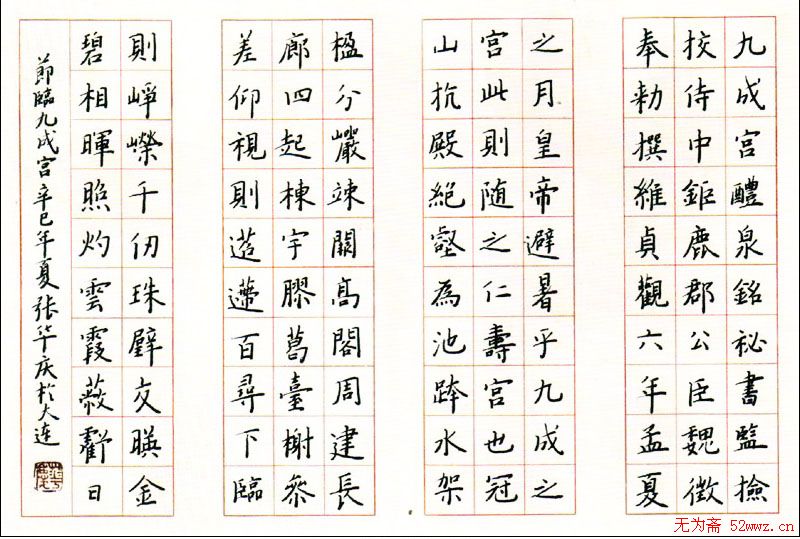 九成宮醴泉銘祕書監撿
挍侍中鉅鹿郡公臣魏徵
奉勑撰維貞觀六年孟夏
之月皇帝避暑乎九成之
宮此則随之仁壽宮也冠
山抗殿絕壑為池跨水架
楹分巖竦闕高閣周建長
廊四起棟宇膠葛臺榭參
差仰視則迢遰百尋下臨
則崢嶸千仞珠壁交暎金
碧相暉照灼雲霞蔽虧日
節臨九成宮辛巳年夏张华庆於大连
无为斋 52wwz.cn